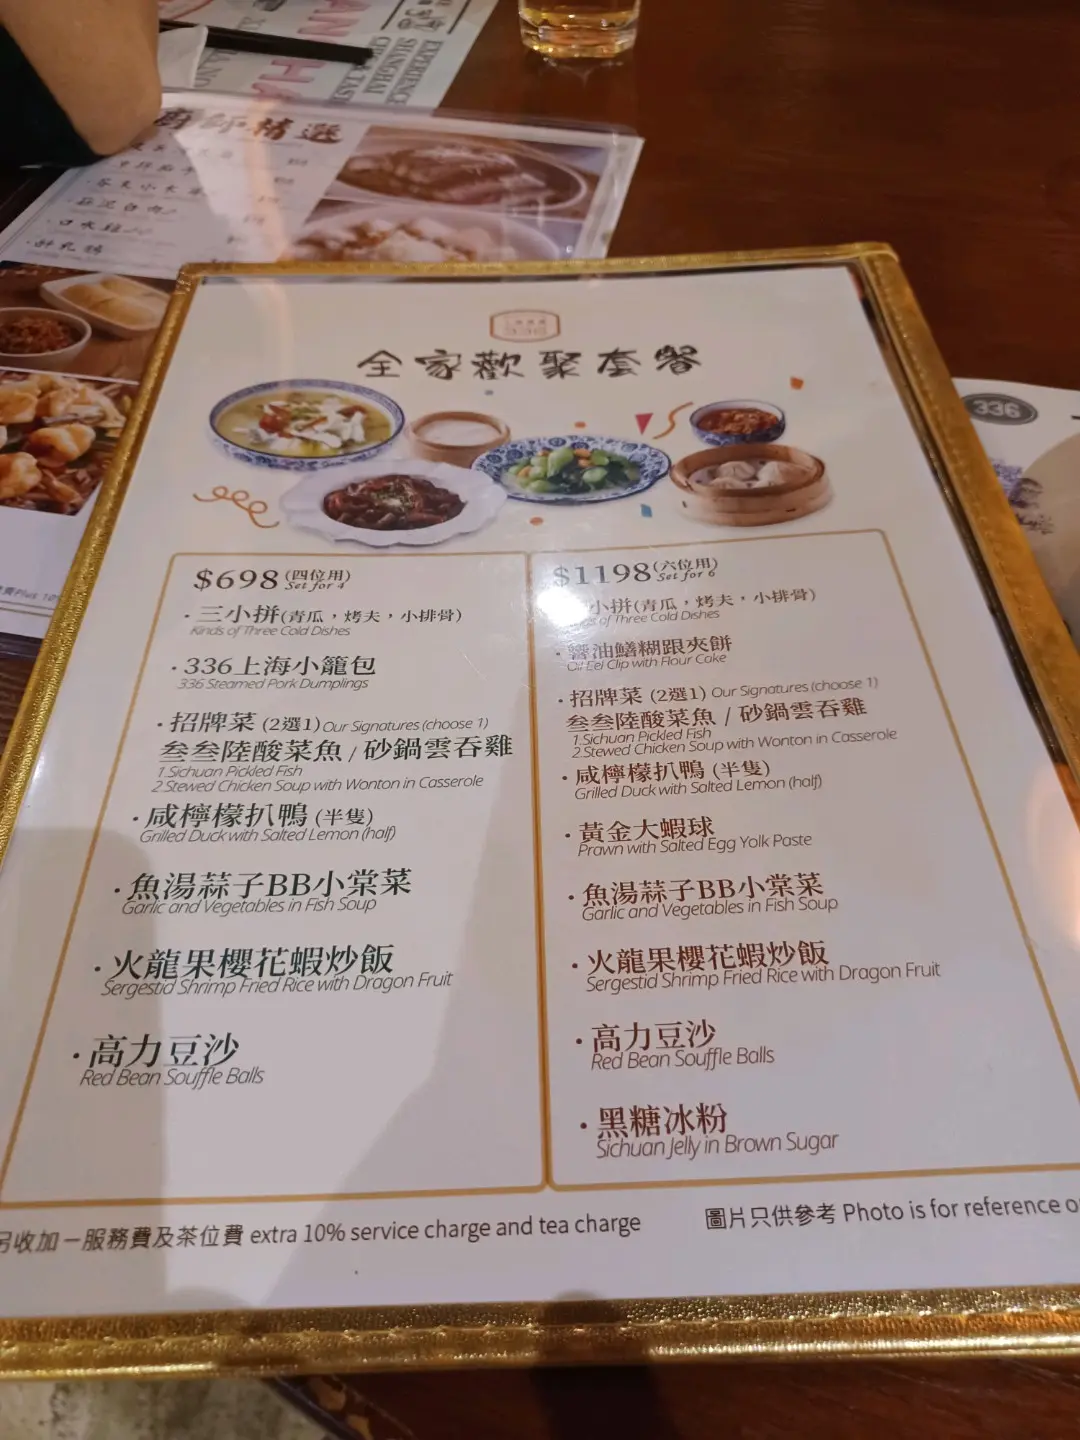 EXPERIENCE
SHANGHAI
廚師精選
口水雞
336
全家歡聚套餐
$698 (四位用)
Set for 4
·三小拼(青瓜，烤夫，小排骨)
Kinds of Three Cold Dishes
·336上海小籠包
336 Steamed Pork Dumplings
·招牌菜 (2選1) Our Signatures (choose 1)
叁叁陸酸菜魚 / 砂鍋雲吞雞
1.Sichuan Pickled Fish
2.Stewed Chicken Soup with Wonton in Casserole
·咸檸檬扒鴨 (半隻)
Grilled Duck with Salted Lemon (half)
·魚湯蒜子BB小棠菜
Garlic and Vegetables in Fish Soup
·火龍果櫻花蝦炒飯
Sergestid Shrimp Fried Rice with Dragon Fruit
·高力豆沙
Red Bean Souffle Balls
$1198 (六位用)
Set for 6
小拼(青瓜，烤夫，小排骨)
of Three Cold Dishes
·響油鱔糊跟夾餅
Oil Eel Clip with Flour Cake
·招牌菜 (2選1) Our Signatures (choose 1)
叁叁陸酸菜魚 / 砂鍋雲吞雞
1.Sichuan Pickled Fish
2.Stewed Chicken Soup with Wonton in Casserole
·咸檸檬扒鴨 (半隻)
Grilled Duck with Salted Lemon (half)
·黃金大蝦球
Prawn with Salted Egg Yolk Paste
·魚湯蒜子BB小棠菜
Garlic and Vegetables in Fish Soup
·火龍果櫻花蝦炒飯
Sergestid Shrimp Fried Rice with Dragon Fruit
·高力豆沙
Red Bean Souffle Balls
·黑糖冰粉
Sichuan Jelly in Brown Sugar
另收加一服務費及茶位費 extra 10% service charge and tea charge
圖片只供參考 Photo is for reference